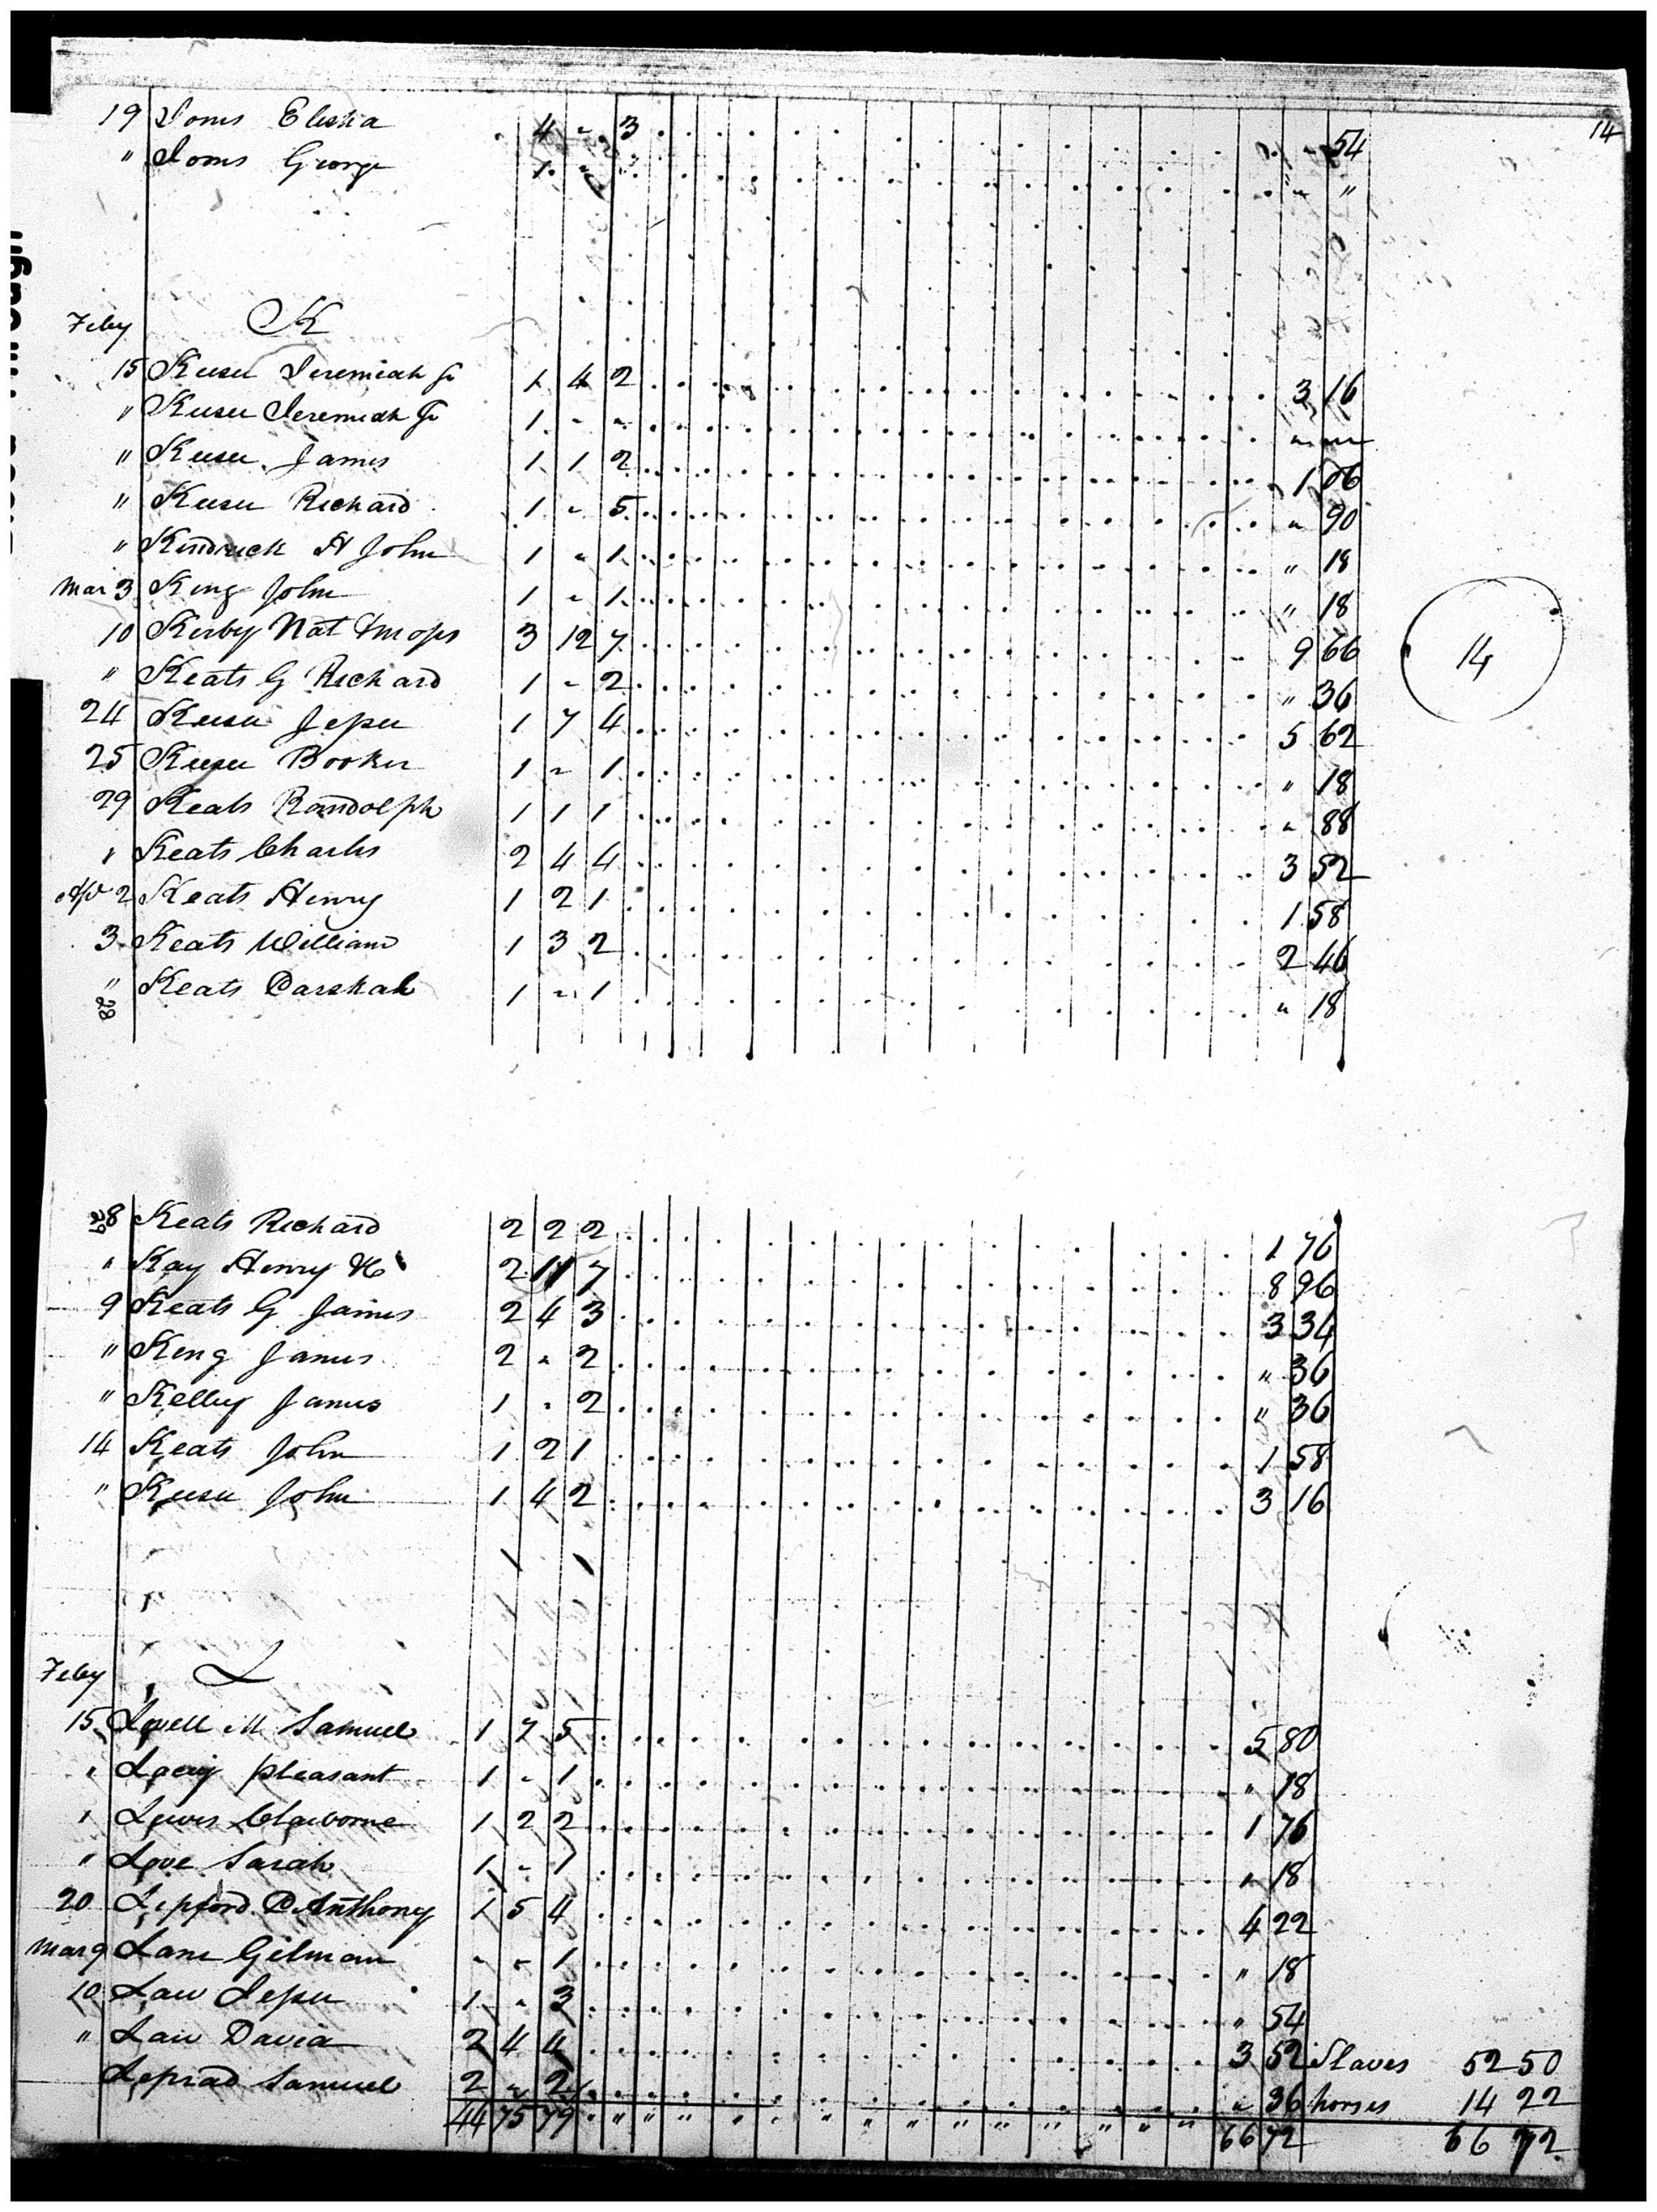 14
19 Ioms Elisha 4 " 3 " 54
" Ioms George 1 " " " "
Feby K
15 Keesee Jeremiah Sr 1 4 2 3 16
" Keesee Jeremiah Jr 1 " " " "
" Keesee James 1 1 2 1 06
" Keesee Richard 1 " 5 " 90
" Kindrick H John 1 " 1 " 18
Mar 3 King John 1 " 1 " 18
10 Kerby Nat 3 12 7 9 66
" Keats G Richard 1 " 2 " 36
14
24 Keesee Jesse 1 7 4 5 62
25 Keesee Booker 1 " 1 " 18
29 Keats Randolph 1 1 1 " 88
" Keats Charles 2 4 4 3 52
Apr 2 Keats Henry 1 2 1 1 58
3 Keats William 1 3 2 2 46
" Keats 1 " 1 " 18
28
8 Keats Richard 2 2 2 1 76
" Kay Henry 2 11 7 8 96
9 Keats G James 2 4 3 3 34
" King James 2 " 2 " 36
" Kelley James 1 " 2 " 36
14 Keats John 1 2 1 1 58
" Keesee John 1 4 2 3 16
Feby L
15 Lovell M Samuel 1 7 5 5 80
" Lacuy Pleasant 1 " 1 " 18
" Lewis Claiborne 1 2 2 1 76
" Love Sarah 1 " 1 " 18
20 Lipford D Anthony 1 5 4 4 22
Mar 9 Lane Gilman " " 1 " 18
10 Law Jesse 1 " 3 " 54
" Law David 2 4 4 3 52 Slaves 52 50
Leprad Samuel 2 " 2 " 36 horses 14 22
44 75 79 " " " " " " " " " " " " " " 66 72 66 72